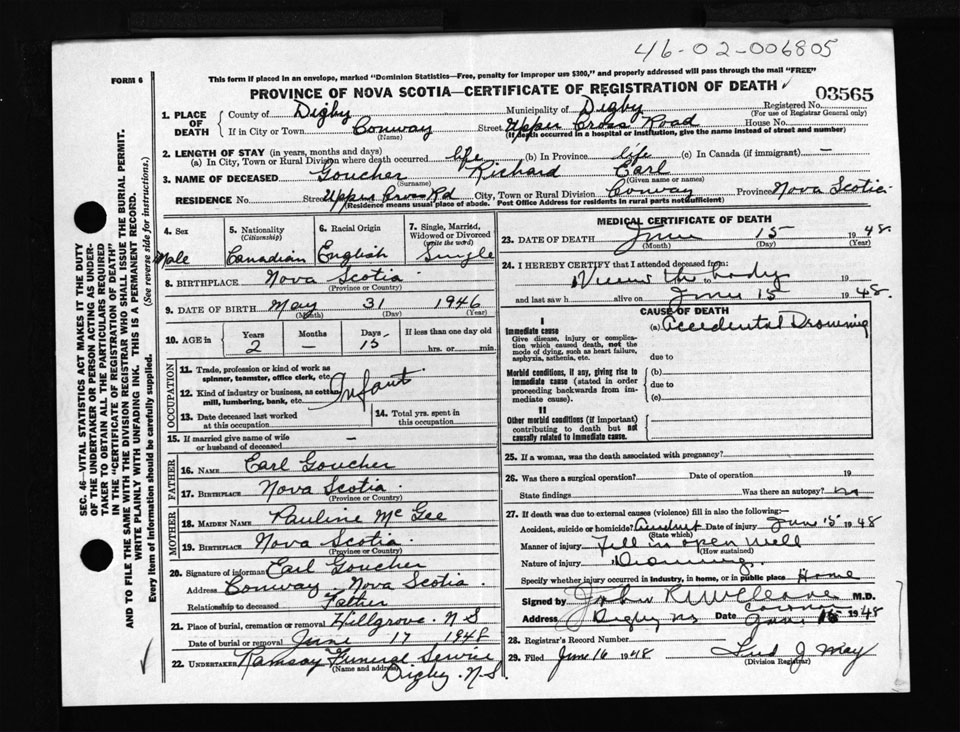 46-02-006805
FORM 6
This form if placed in an envelope, marked "Dominion Statistics—Free, penalty for improper use $300," and properly addressed will pass through the mail "FREE"
PROVINCE OF NOVA SCOTIA—CERTIFICATE OF REGISTRATION OF DEATH
03565
1. PLACE OF DEATH
County of Digby Municipality of Digby Registered No.
(For use of Registrar General only)
If in City or Town Conway Street Upper Cross Road House No.
(Name) (If death occurred in a hospital or institution, give the name instead of street and number)
2. LENGTH OF STAY (in years, months and days)
(a) In City, Town or Rural Division where death occurred life (b) In Province life (c) In Canada (if immigrant) —
3. NAME OF DECEASED Goucher Richard Earl
(Surname) (Given name or names)
RESIDENCE No. Street Upper Cross Rd City, Town or Rural Division Conway Province Nova Scotia
(Residence means usual place of abode. Post Office Address for residents in rural parts not sufficient)
4. Sex
Male
5. Nationality
(Citizenship)
Canadian
6. Racial Origin
English
7. Single, Married, Widowed or Divorced
(write the word)
Single
8. BIRTHPLACE Nova Scotia
(Province or Country)
9. DATE OF BIRTH May 31 1946
(Month) (Day) (Year)
10. AGE in
Years Months Days If less than one day old
2 — 15 hrs. or min.
OCCUPATION
11. Trade, profession or kind of work as spinner, teamster, office clerk, etc.
12. Kind of industry or business, as cotton mill, lumbering, bank, etc.
Infant
13. Date deceased last worked at this occupation
14. Total yrs. spent in this occupation
15. If married give name of wife or husband of deceased —
FATHER
16. NAME Earl Goucher
17. BIRTHPLACE Nova Scotia
(Province or Country)
MOTHER
18. MAIDEN NAME Pauline McGee
19. BIRTHPLACE Nova Scotia
(Province or Country)
20. Signature of informant Earl Goucher
Address Conway Nova Scotia
Relationship to deceased Father
21. Place of burial, cremation or removal Hillgrove N S
Date of burial or removal June 17 1948
22. UNDERTAKER Ramsay Funeral Service
(Name and address)
Digby. N.S
MEDICAL CERTIFICATE OF DEATH
23. DATE OF DEATH June 15 1948
(Month) (Day) (Year)
24. I HEREBY CERTIFY that I attended deceased from:
the body 19
and last saw h alive on June 15 1948.
CAUSE OF DEATH
I
Immediate cause
Give disease, injury or complication which caused death, not the mode of dying, such as heart failure, asphyxia, asthenia, etc.
(a) Accidental Drowning
due to
Morbid conditions, if any, giving rise to immediate cause (stated in order proceeding backwards from immediate cause).
(b)
due to
(c)
II
Other morbid conditions (if important) contributing to death but not causally related to immediate cause.
25. If a woman, was the death associated with pregnancy?
26. Was there a surgical operation? Date of operation 19
State findings Was there an autopsy? no
27. If death was due to external causes (violence) fill in also the following:
Accident, suicide or homicide? Accident Date of injury June 15 1948
(State which)
Manner of injury Fell in open well
(How sustained)
Nature of injury Drowning
Specify whether injury occurred in industry, in home, or in public place Home
Signed by John M.D.
Coroner
Address Digby NS Date 15 1948
28. Registrar's Record Number
29. Filed June 16 1948
J May
(Division Registrar)
SEC. 46—VITAL STATISTICS ACT MAKES IT THE DUTY OF THE UNDERTAKER OR PERSON ACTING AS UNDERTAKER TO OBTAIN ALL THE PARTICULARS REQUIRED IN THE "CERTIFICATE OF REGISTRATION OF DEATH" AND TO FILE THE SAME WITH THE DIVISION REGISTRAR WHO SHALL ISSUE THE BURIAL PERMIT.
WRITE PLAINLY WITH UNFADING INK. THIS IS A PERMANENT RECORD.
Every item of information should be carefully supplied. (See reverse side for instructions.)